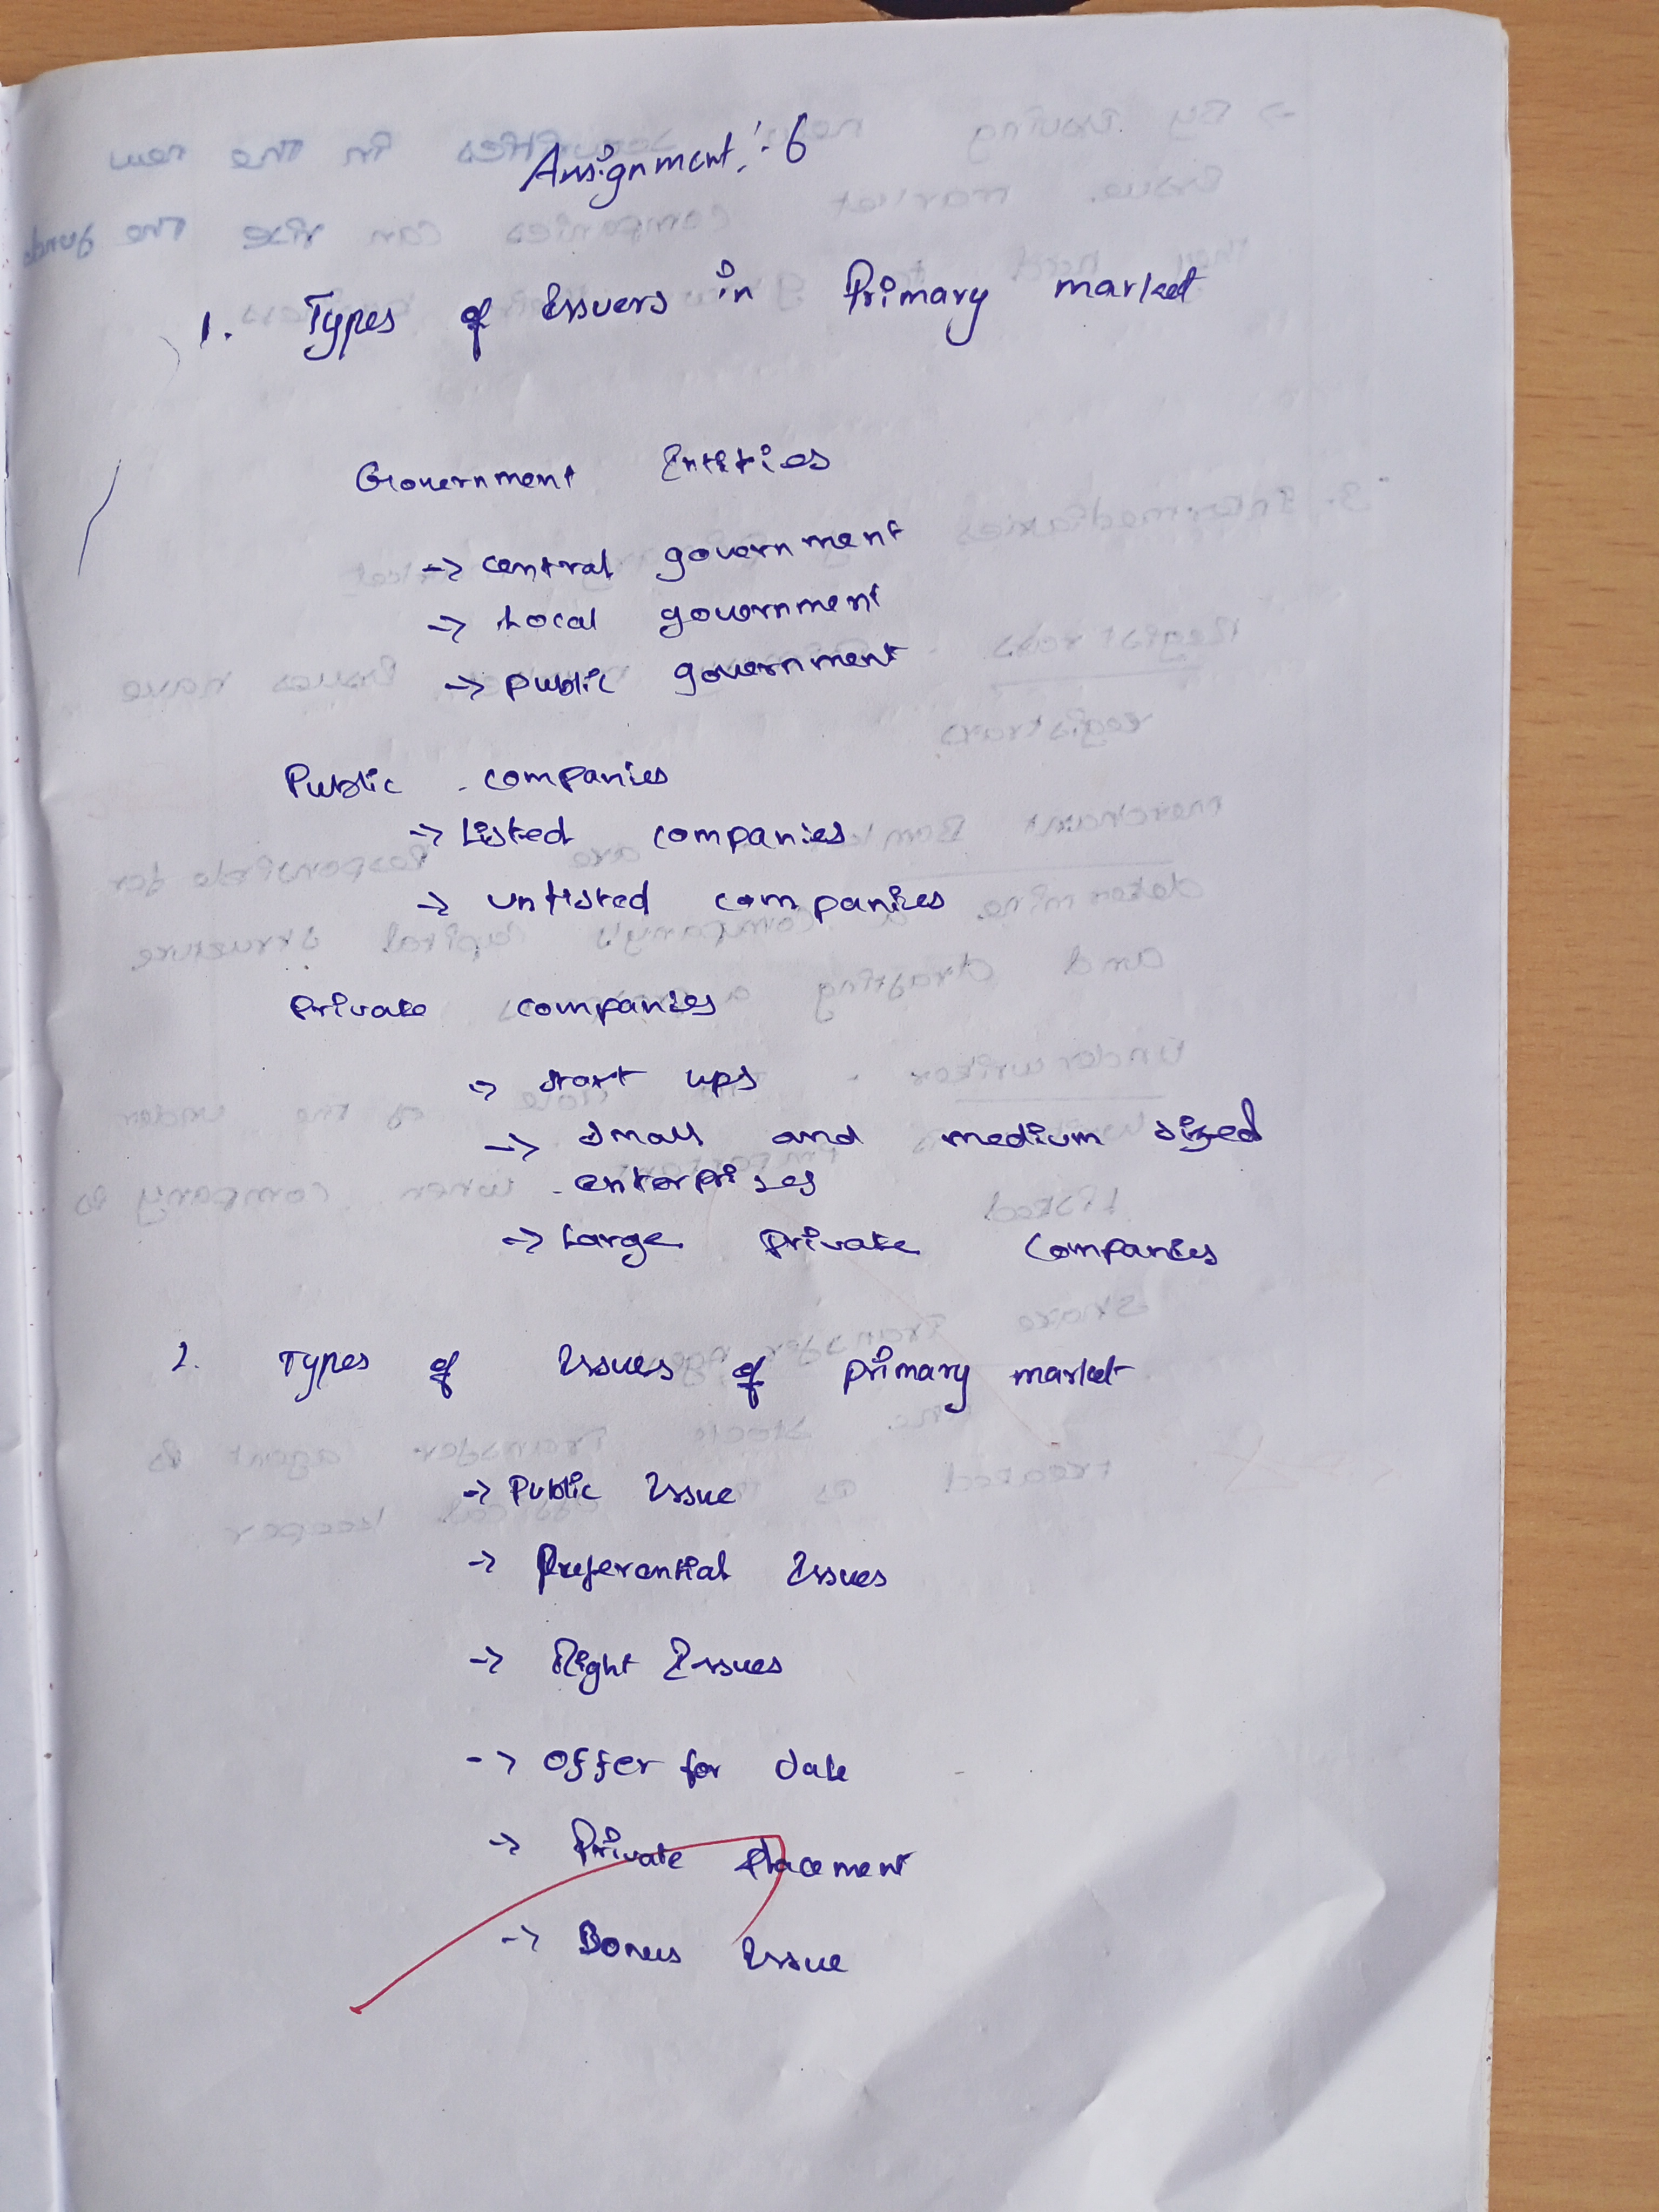 Assignment :- 6
1. Types of Issuers in Primary market
Government Entities
-> central government
-> Local government
-> public government
Public companies
-> Listed companies
-> unlisted companies
Private companies
-> start ups
-> small and medium sized
enterprises
-> Large private companies
2. Types of Issues of primary market
-> Public Issue
-> Preferential Issues
-> Right Issues
-> Offer for Sale
-> Private placement
-> Bonus Issue